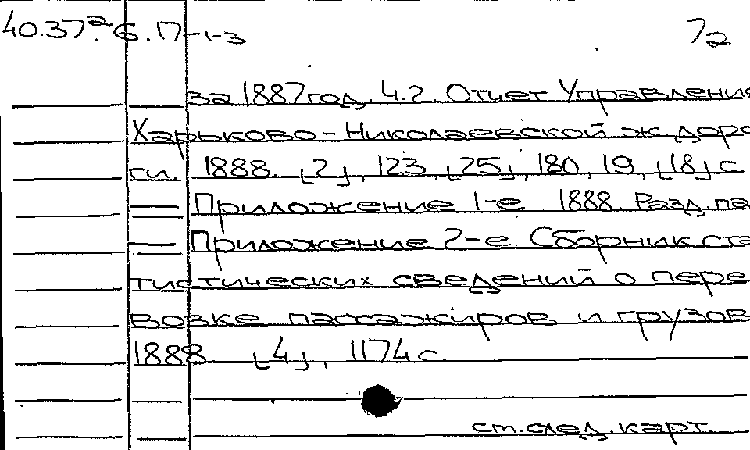 40.37.2 6.П-1-3 72
за 1887 год. Ч.2. Отчет Управления
Харьково-Николаевской ж.доро
ги. 1888. [2], 123, [25], 180, 19, [18] с
— Приложение 1-е 1888. Разд. паг
— Приложение 2-е. Сборник ста
тистических сведений о пере
возке пассажиров и грузов
1888 [4], 1174 с
см. след. карт.